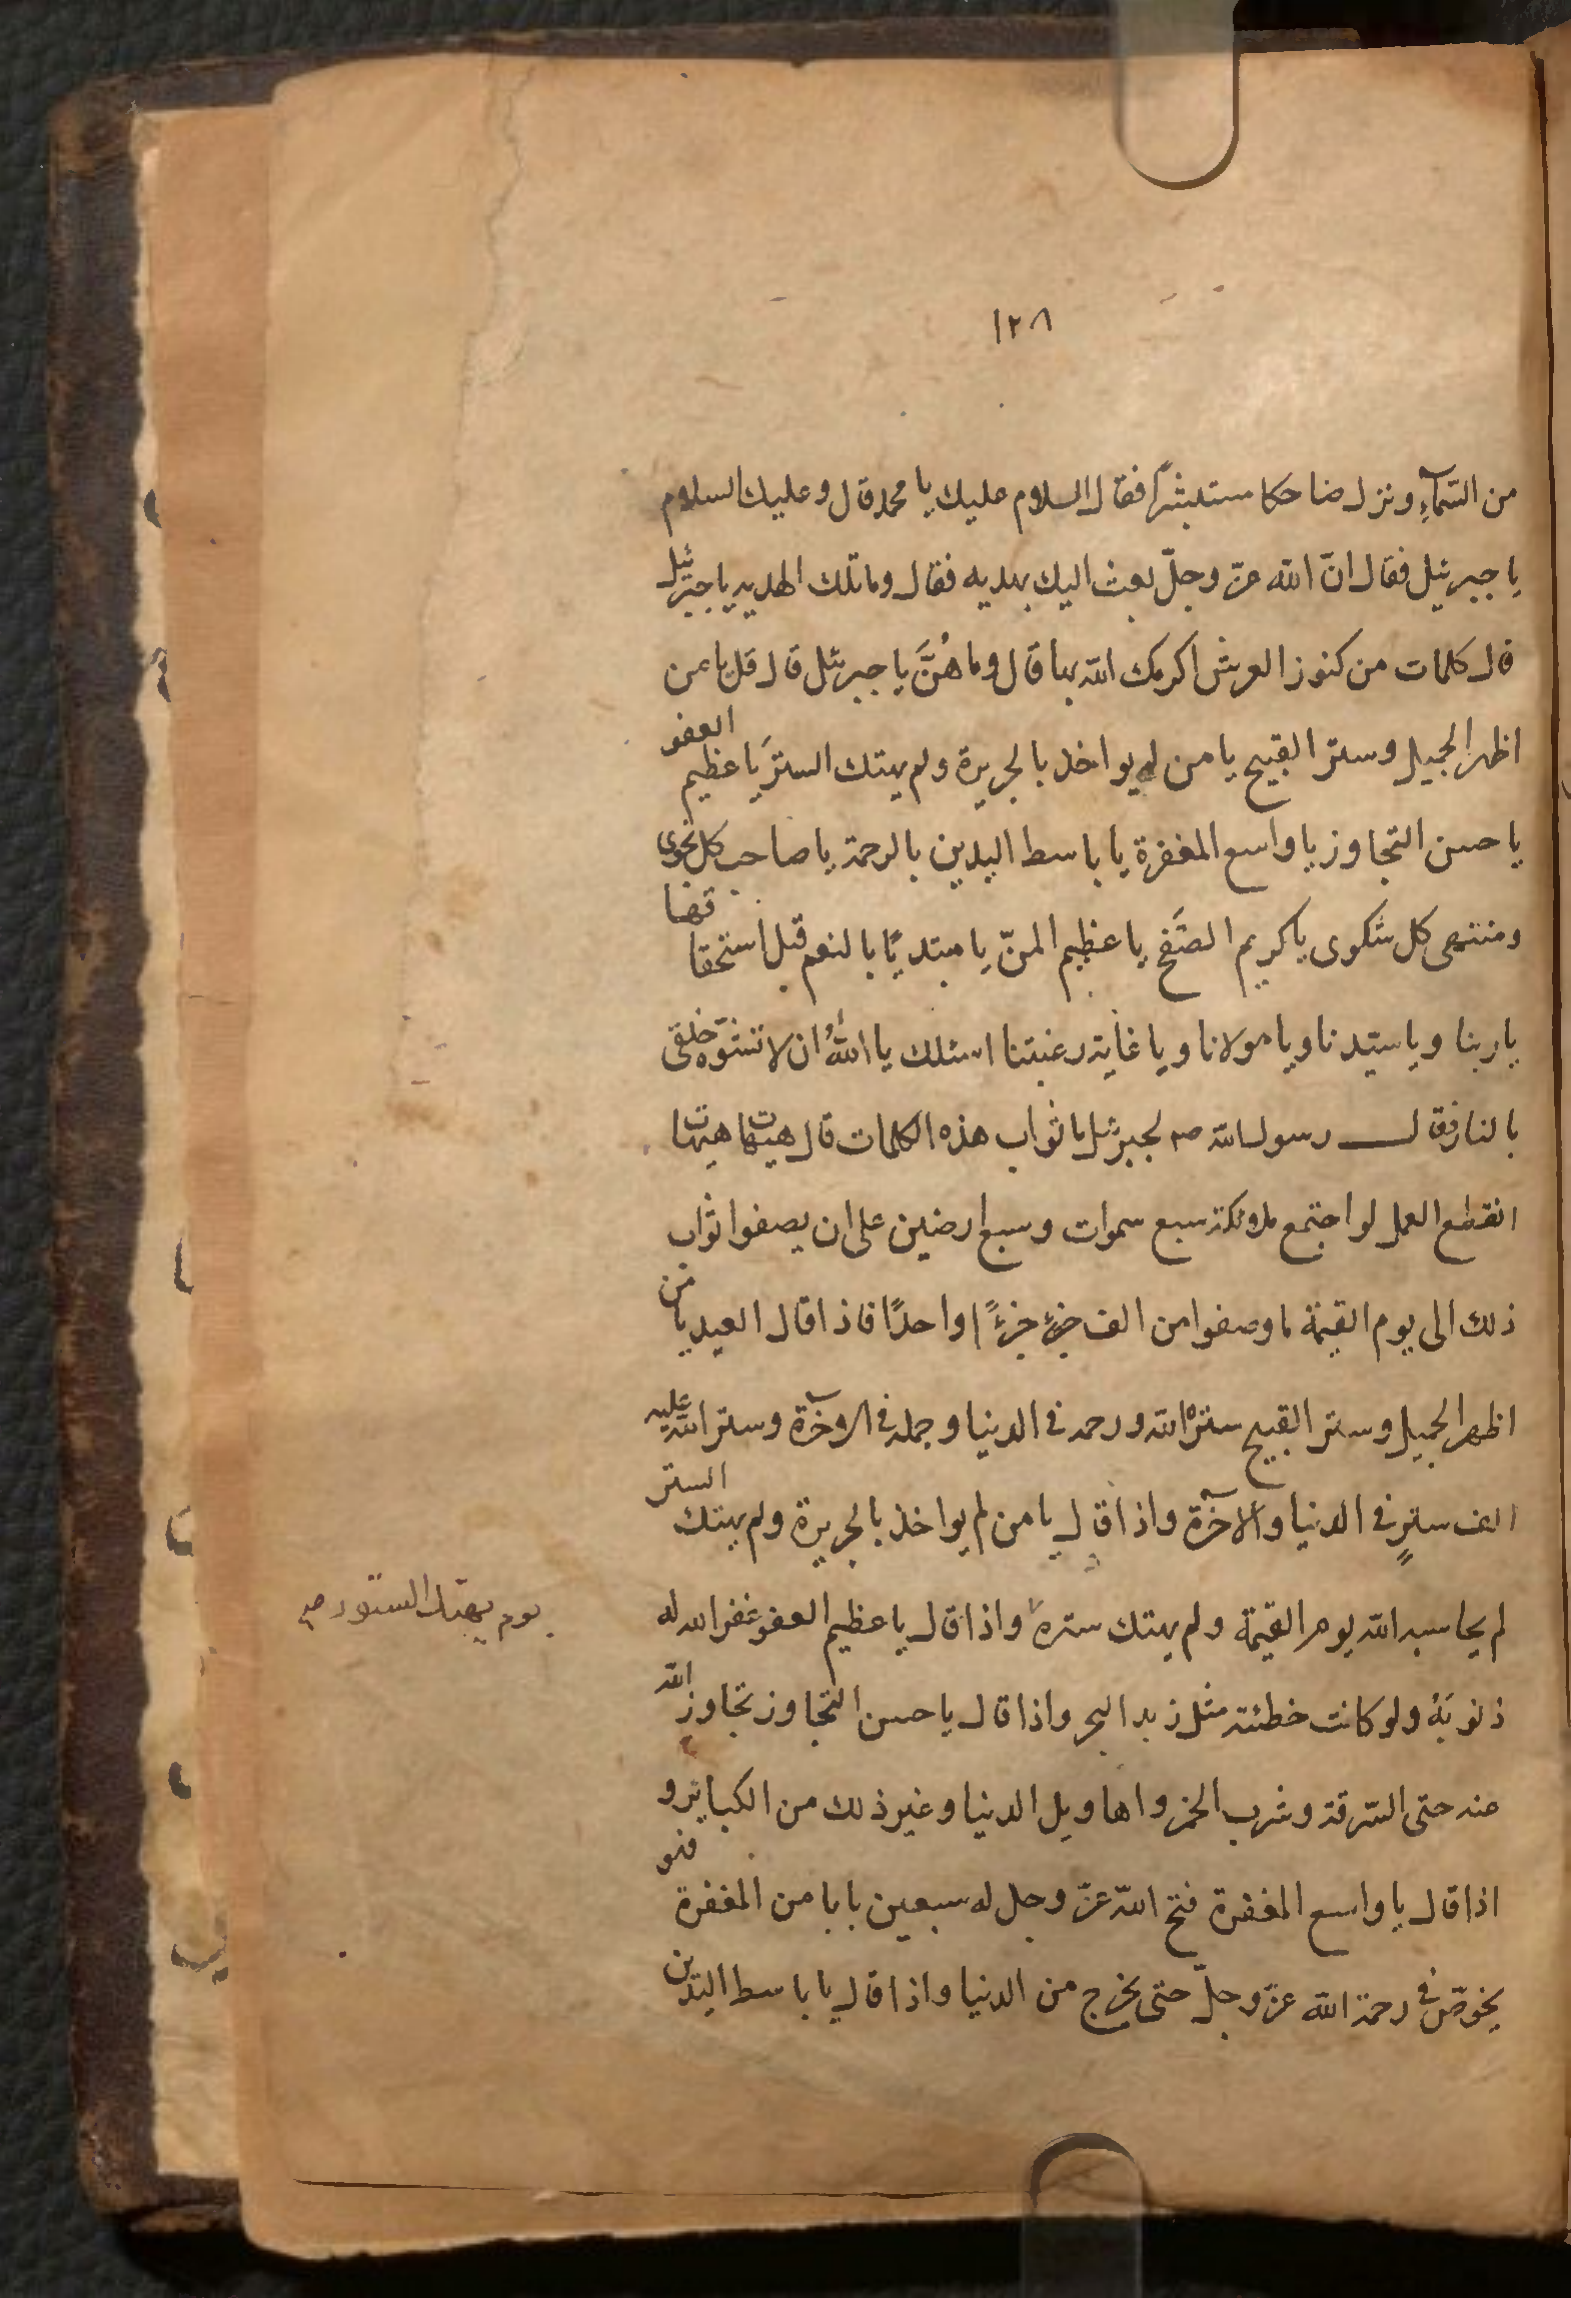 ١٢٨
من السّمآءِ ونزل ضاحكا مستبشراً فقال السلام عليك يا محمد قال وعليك السلام
يا جبرئيل فقال انّ الله عزّ وجلّ بعث اليك بهديه فقال وما تلك الهديه يا جبرئيل
قال كلمات من كنوز العرش اكرمك الله بها قال وما هُنَّ يا جبرئيل قال قل يا من
اظهر الجميل وستر القبيح يا من لم يواخذ بالجريرة ولم يهتك الستر يا عظيم العفو
يا حسن التجاوز يا واسع المغفرة يا باسط اليدين بالرحمة يا صاحب كل نجوى
ومنتهى كل شكوى يا كريم الصَّفح يا عظيم المنّ يا مبتديًا بالنعم قبل استحقاقها
يا ربنا ويا سيّدنا ويا مولانا ويا غاية رغبتنا اسئلك يا اللهُ ان لا تشوّه خلقى
بالنار فقال رسول الله ص لجبرئيل ما ثواب هذه الكلمات قال هيهات هيهات
انقطع العمل لو اجتمع ملائكة سبع سموات وسبع ارضين على ان يصفوا ثواب
ذلك الى يوم القيمة ما وصفوا من الف جزءٍ جزءًا واحدًا فاذا قال العبد يا من
اظهر الجميل وستر القبيح ستره الله ورحمه فى الدنيا وجمله فى الاخرة وستر الله عليه
الف سترٍ فى الدنيا والآخرة واذا قال يا من لم يواخذ بالجريرة ولم يهتك الستر
لم يحاسبه الله يوم القيمة ولم يهتك ستره واذا قال يا عظيم العفو غفر الله له
يوم يهتك الستور صح
ذنوبَهُ ولو كانت خطئته مثل زبد البحر واذا قال يا حسن التجاوز تجاوز الله
عنه حتى السّرقة وشرب الخمر واهاويل الدنيا وغير ذلك من الكباير و
اذا قال يا واسع المغفرة فتح الله عزّ وجل له سبعين بابا من المغفرة فهو
يخوض فى رحمة الله عزّ وجلّ حتى يخرج من الدنيا واذا قال يا باسط اليدين